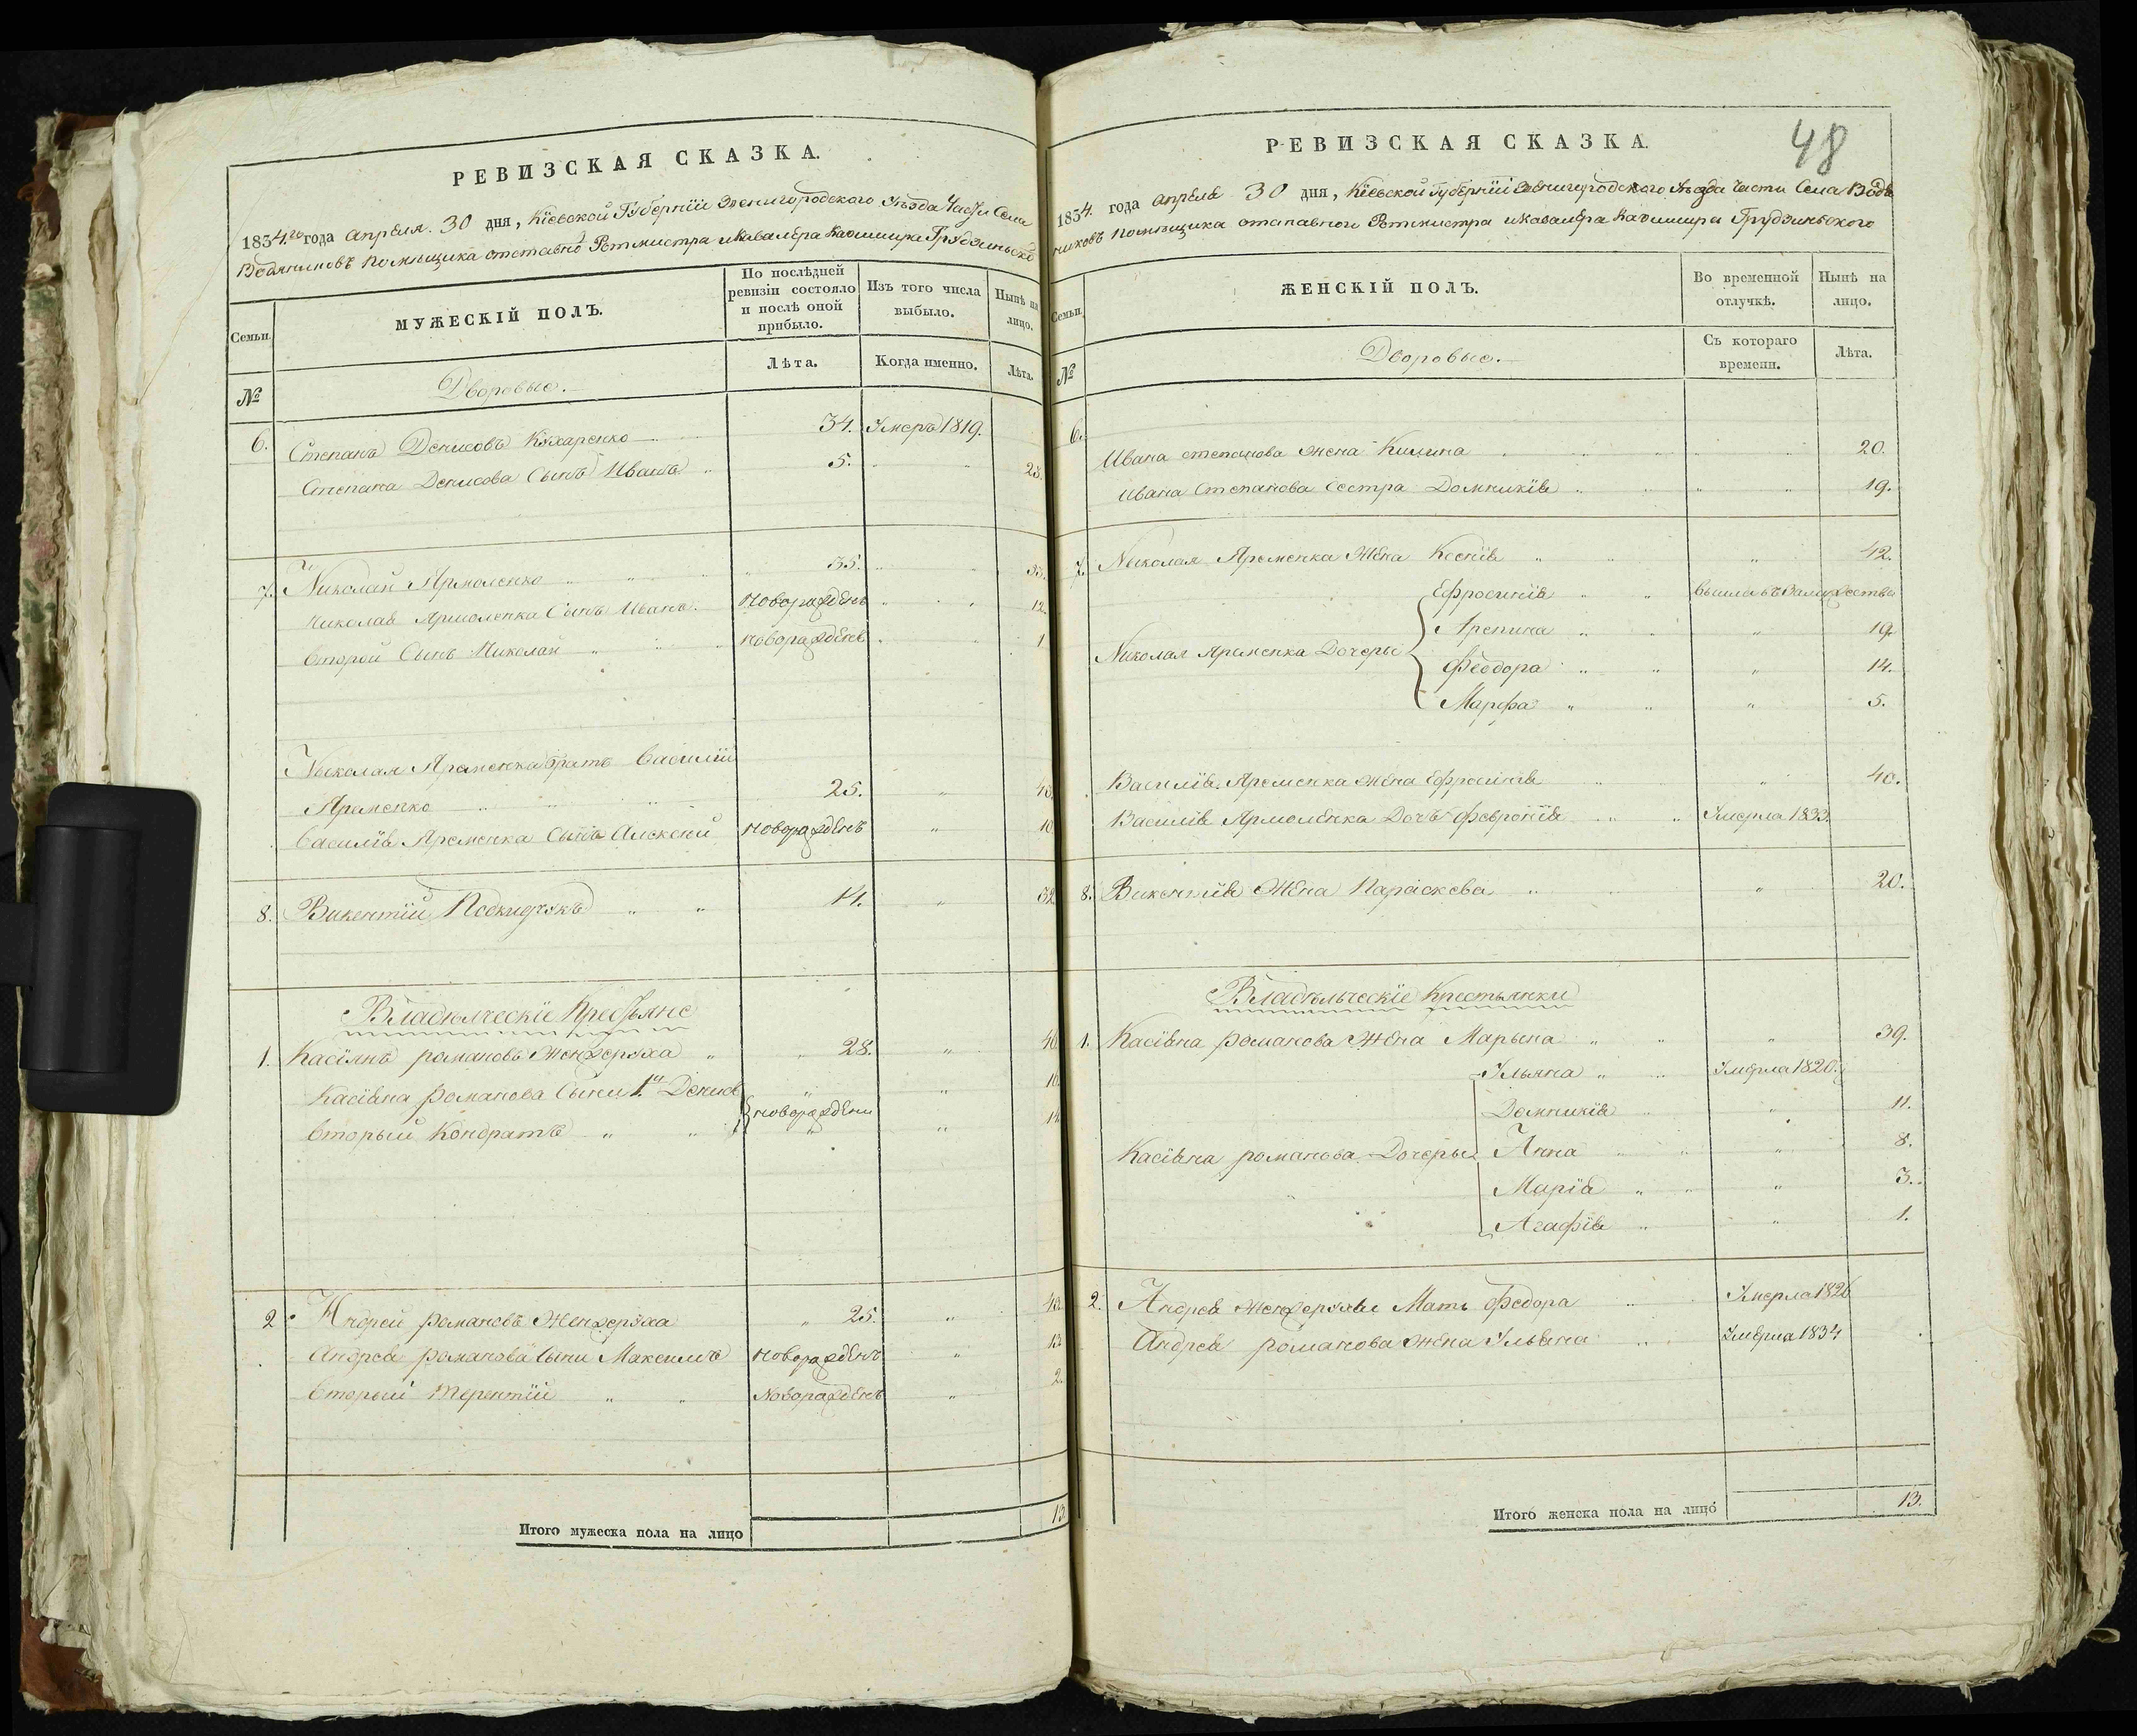 РЕВИЗСКАЯ СКАЗКА.
1834.го года апреля 30 дня, Кіевской Губерніи Звенигородского Уѣзда Части Села
Водяниковъ помѣщика отставно Ротмистра и Кавалера Казимира Грудзиньско
Семьи.
МУЖЕСКІЙ ПОЛЪ.
По послѣдней ревизіи состояло и послѣ оной прибыло.
Изъ того числа выбыло.
Нынѣ на лицо.
№
Дворовые.
Лѣта.
Когда именно.
Лѣта.
6. Степанъ Денисовъ Кухаренко 34. Умеръ 1819.
Степана Денисова Сынъ Иванъ 5. " 23.
7. Николай Ярмоленко 35.
Николая Ярмоленка Сынъ Иванъ новоражденъ 12.
второй Сынъ Николай новоражденъ 1
Николая Яременка братъ Василій
Яременко 25. "
Василія Яременка Сынъ Алексей новоражденъ " 10.
8. Викентій Подкидчукъ 14. " 32
Владѣлческіе Крестьяне
1. Касіянъ романовъ Женжеруха 28. "
Касіяна романова Сыни 1й Денисъ "
вторый Кондратъ новораждени " 14
2. Андрей романовъ Женжеруха 25. "
Андрея романова Сыни Максимъ новоражденъ " 13
вторый Терентій новоражденъ " 2.
Итого мужеска пола на лицо 13.
48
РЕВИЗСКАЯ СКАЗКА.
1834. года апреля 30 дня, Кіевской Губерніи Звенигородского Уѣзда Части Села Водя
никовъ помѣщика отставного Ротмистра и Кавалера Казимира Грудзиньского
Семьи.
ЖЕНСКІЙ ПОЛЪ.
Во временной отлучкѣ.
Нынѣ на лицо.
№
Дворовые.
Съ котораго времени.
Лѣта.
6. Ивана степанова жена Килина " 20.
Ивана Степанова Сестра Домникія " 19.
7. Николая Яременка Жена Ксенія " 42.
Ефросинія вышла въ Замужество
Арепина " 19.
Николая Яременка Дочеры
Феодора " 14.
Марфа " 5.
Василія Яременка Жена Ефросинія " 40.
Василія Ярмоленка Дочъ Февронія Умерла 1833.
8. Викентія Жена Параскева " 20.
Владѣльческіе Крестьянки
1. Касіяна романова Жена Марьяна " 39.
Ульяна Умерла 1820.
Домникія " 11.
Касіяна романова Дочеры Анна " 8.
Марія " 3.
Агафія " 1.
2. Андрея Женжерухи Мать Федора Умерла 1826
Андрея романова Жена Ульяна Умерла 1834
Итого женска пола на лицо 13.